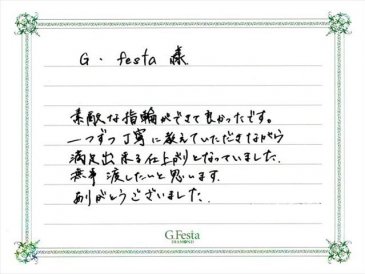 G.festa 様
素敵な指輪ができて良かったです。
一つずつ丁寧に教えていただきながら
満足出来る仕上がりとなっていました。
無事渡したいと思います。
ありがとうございました。
G.Festa
DIAMOND